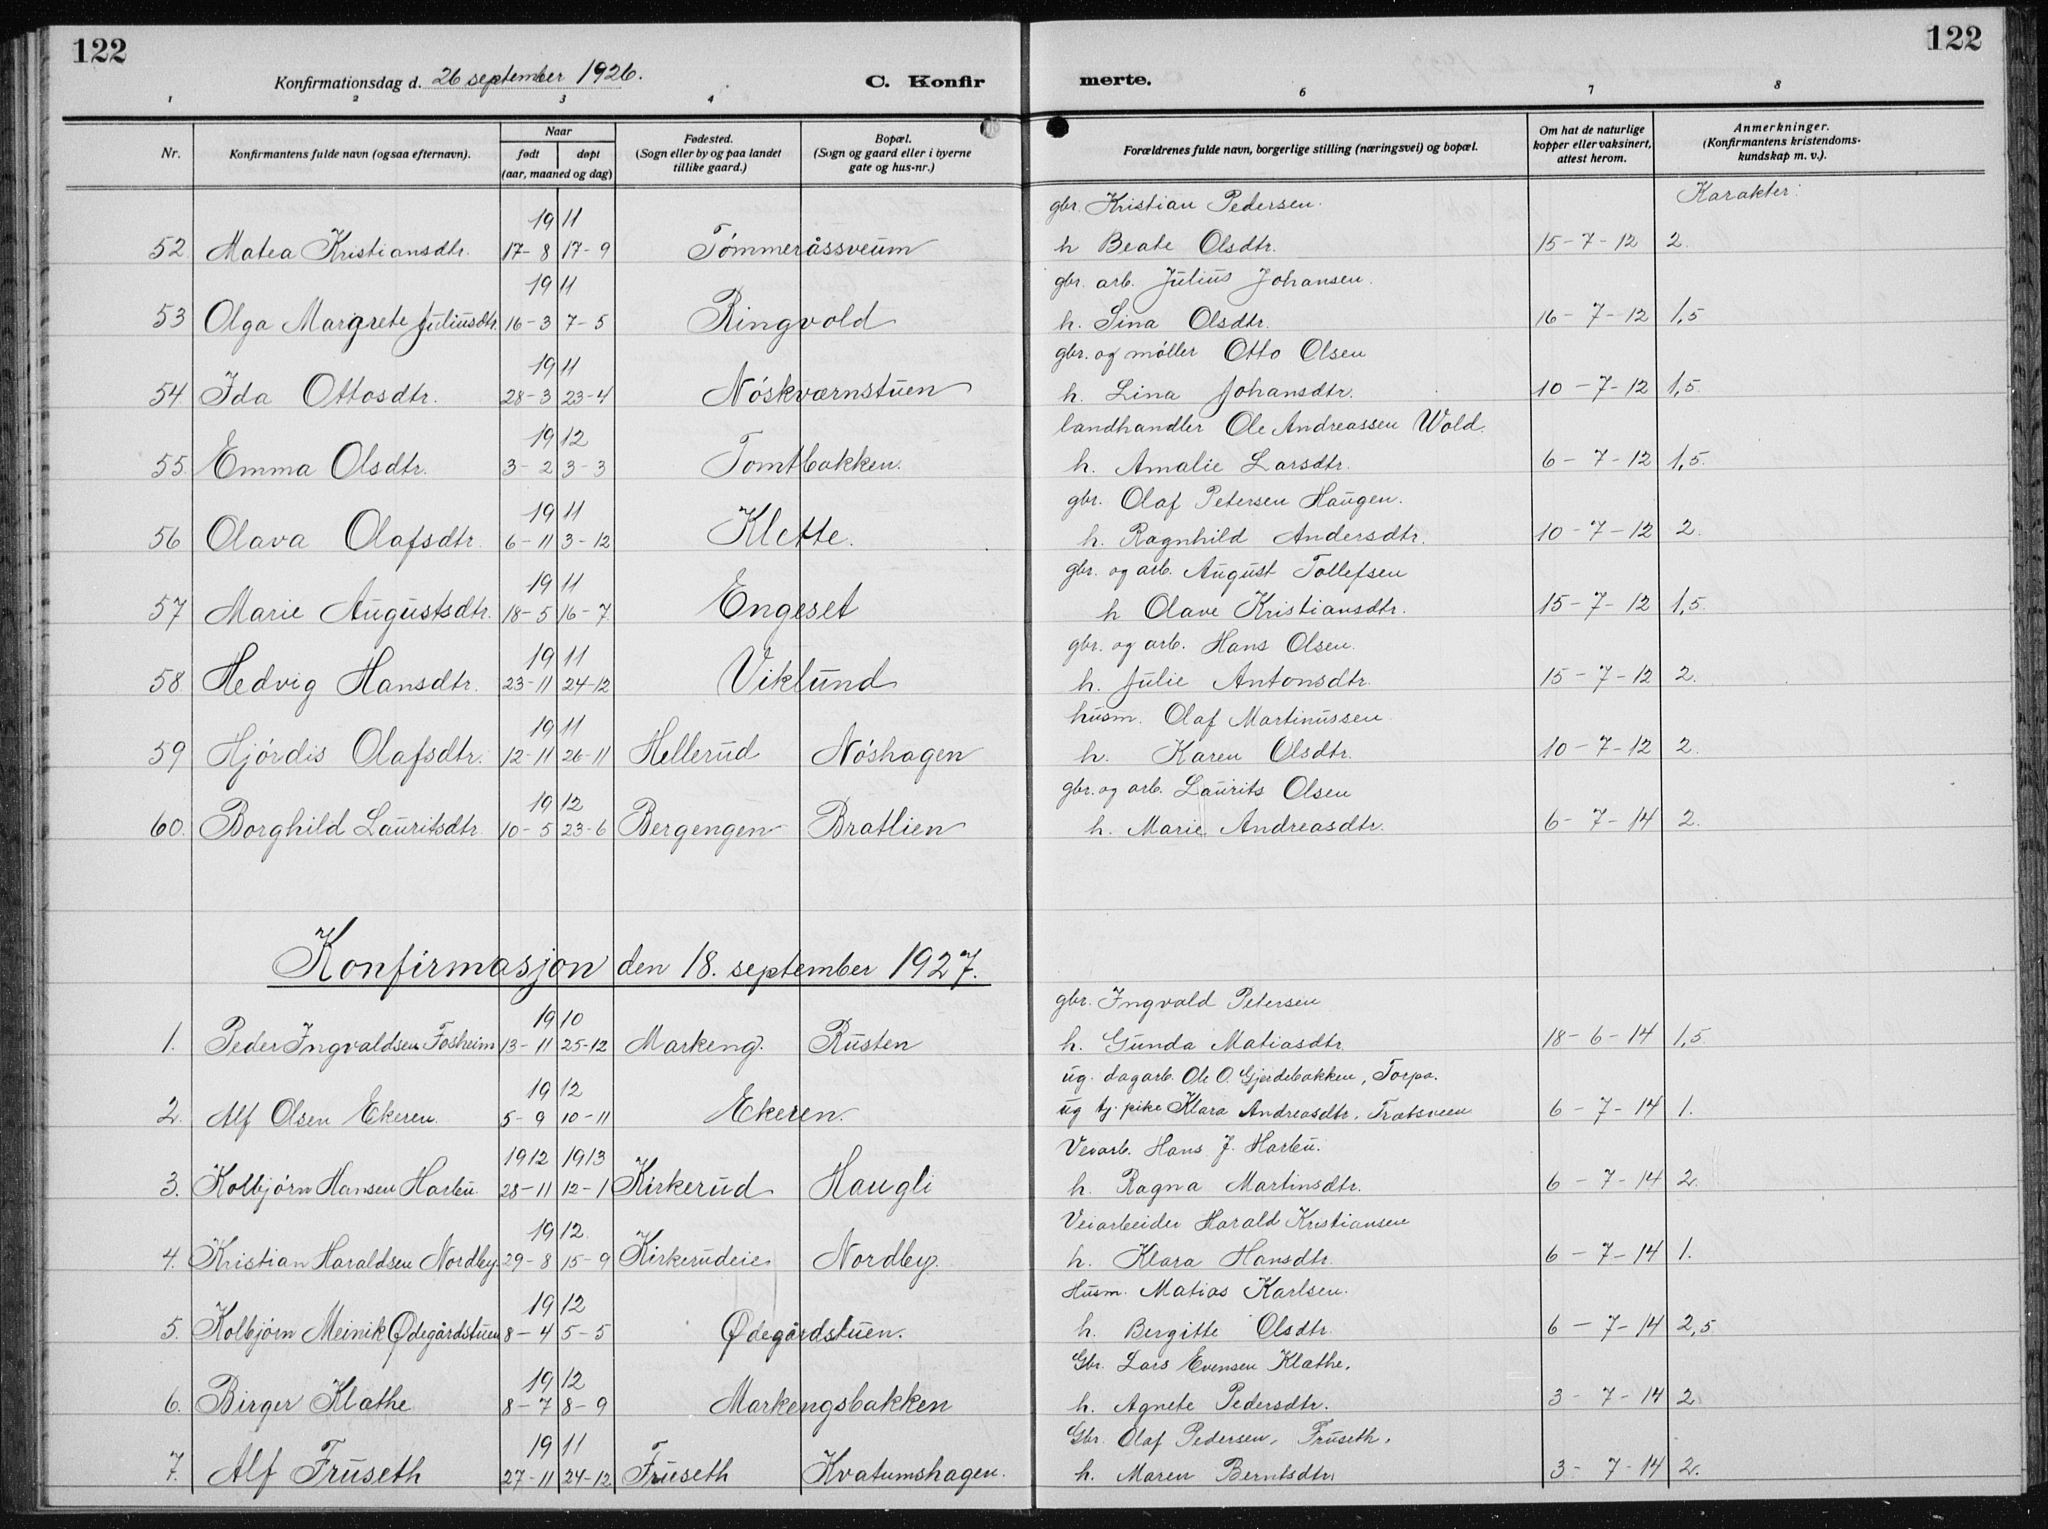 122
122
Konfirmationsdag d. 26 september 1926.
C. Konfirmerte.
1 2 3 4 6 7 8
Nr.
Konfirmantens fulde navn (ogsaa efternavn).
Naar
født døpt
(aar, maaned og dag)
Fødested.
(Sogn eller by og paa landet
tillike gaard.)
Bopæl.
(Sogn og gaard eller i byerne
gate og hus-nr.)
Forældrenes fulde navn, borgerlige stilling (næringsvei) og bopæl.
Om hat de naturlige
kopper eller vaksinert,
attest herom.
Anmerkninger.
(Konfirmantens kristendoms-
kundskap m. v.).
Karakter:
19 11 gbr. Kristian Pedersen.
52. Matea Kristiansdtr. 17-8 17-9 Tómmeråssveum h Beate Olsdtr. 15-7-12 2.
19 11 gbr. arb. Julius Johansen.
53 Olga Margrete Juliusdtr. 16-3 7-5 Ringvold h. Sina Olsdtr. 16-7-12 1,5
19 11 gbr. og móller Otto Olsen
54. Ida Ottosdtr. 28-3 23-4 Nóskværnstuen h. Lina Johansdtr. 10-7-12 1,5.
19 12 landhandler Ole Andreassen Wold.
55. Emma Olsdtr. 3-2 3-3 Tomtbakken. h. Amalie Larsdtr. 6-7-12 1,5.
19 11 gbr. Olaf Petersen Haugen.
56 Olava Olafsdtr. 6-11 3-12 Klette. h. Ragnhild Andersdtr. 10-7-12 2.
19 11 gbr. og arb. August Tollefsen
57 Marie Augustsdtr. 18-5 16-7 Engeset h Olave Kristiansdtr. 15-7-12 1,5.
19 11 gbr. og arb. Hans Olsen.
58 Hedvig Hansdtr. 23-11 24-12 Viklund h. Julie Antonsdtr. 15-7-12 2.
19 11 husm. Olaf Martinussen
59 Hjórdis Olafsdtr. 12-11 26-11 Hellerud Nóshagen h. Karen Olsdtr. 10-7-12 2.
19 12 gbr. og arb. Laurits Olsen
60. Borghild Lauritsdtr. 10-5 23-6 Bergengen Bratlien h. Marie Andreasdtr. 6-7-14 2.
Konfirmasjon den 18. september 1927.
19 10 gbr. Ingvald Petersen
1. Peder Ingvaldsen Fosheim 13-11 25-12 Markeng. Rusten h. Gunda Matiasdtr. 18-6-14 1,5.
19 12 ug. dagarb. Ole O. Gjerdebakken, Torpa.
2. Alf Olsen Ekeren. 5-9 10-11 Ekeren. ug tj. pike Klara Andreasdtr. Trætsveen 6-7-14 1.
1912 1913 Veiarb. Hans J. Harbu.
3. Kolbjørn Hansen Harbu 28-11 12-1 Kirkerud Haugli h. Ragna Martinsdtr. 6-7-14 2.
19 12. Veiarbeider Harald Kristiansen
4. Kristian Haraldsen Nordby. 29-8 15-9 Kirkerudeie Nordby. h. Klara Hansdtr. 6-7-14 1.
19 12 Husm. Matias Karlsen.
5. Kolbjørn Meinik Ødegårdstuen 8-4 5-5 Ødegårdstuen. h. Bergitte Olsdtr. 6-7-14 2,5
19 12 Gbr. Lars Evensen Klæthe.
6. Birger Klæthe 8-7 8-9 Markengsbakken h. Agnete Pedersdtr. 3-7-14 2.
19 11 Gbr. Olaf Pedersen, Fruseth.
7. Alf Fruseth 27-11 24-12 Fruseth Kvatumshagen. h. Maren Berntsdtr. 3-7-14 2.